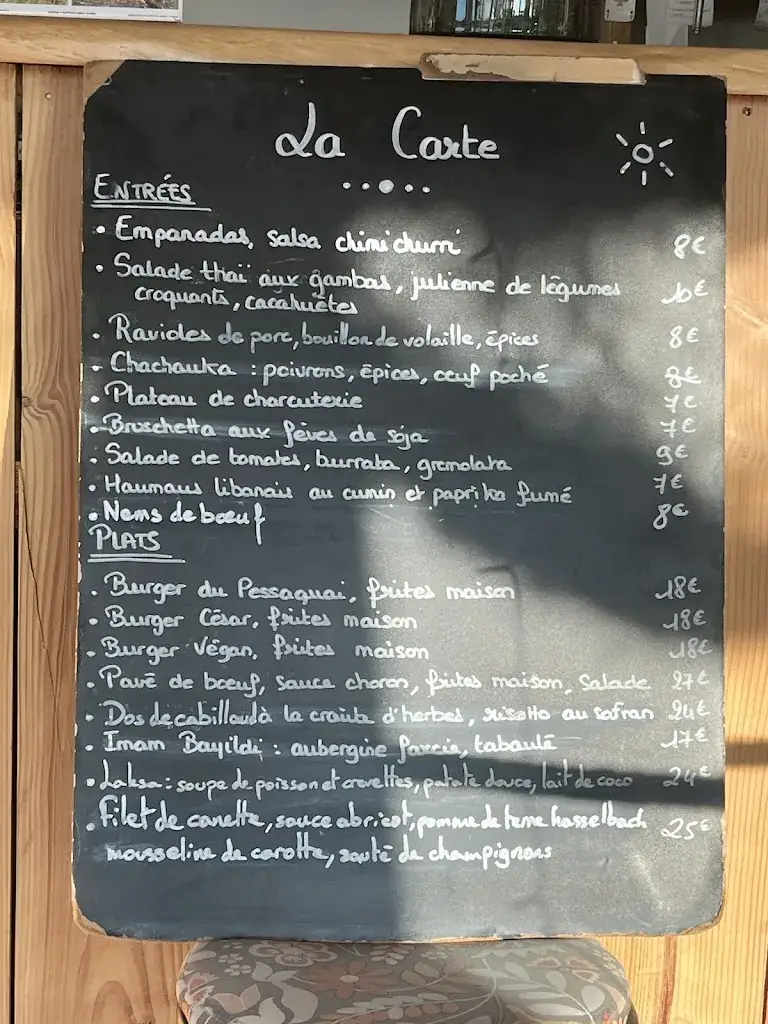 La Carte
ENTRÉES
• Empanadas, salsa chimichurri 8€
• Salade thaï aux gambas, julienne de légumes 10€
croquants, cacahuètes
• Ravioles de porc, bouillon de volaille, épices 8€
• Chachauka : poivrons, épices, oeuf poché 8€
• Plateau de charcuterie 7€
• Bruschetta aux fèves de soja 7€
• Salade de tomates, burrata, gremolata 9€
• Haumaus libanais au cumin et paprika fumé 7€
• Nems de boeuf 8€
PLATS
• Burger du Pessaquai, frites maison 18€
• Burger César, frites maison 18€
• Burger Végan, frites maison 18€
• Pavé de boeuf, sauce choron, frites maison, Salade 27€
• Dos de cabillaud à la croûte d'herbes, risotto au safran 24€
• Imam Bayildi : aubergine farcie, taboulé 17€
• Laksa : soupe de poisson et crevettes, patate douce, lait de coco 24€
• Filet de canette, sauce abricot, pomme de terre hasselback 25€
mousseline de carotte, sauté de champignons